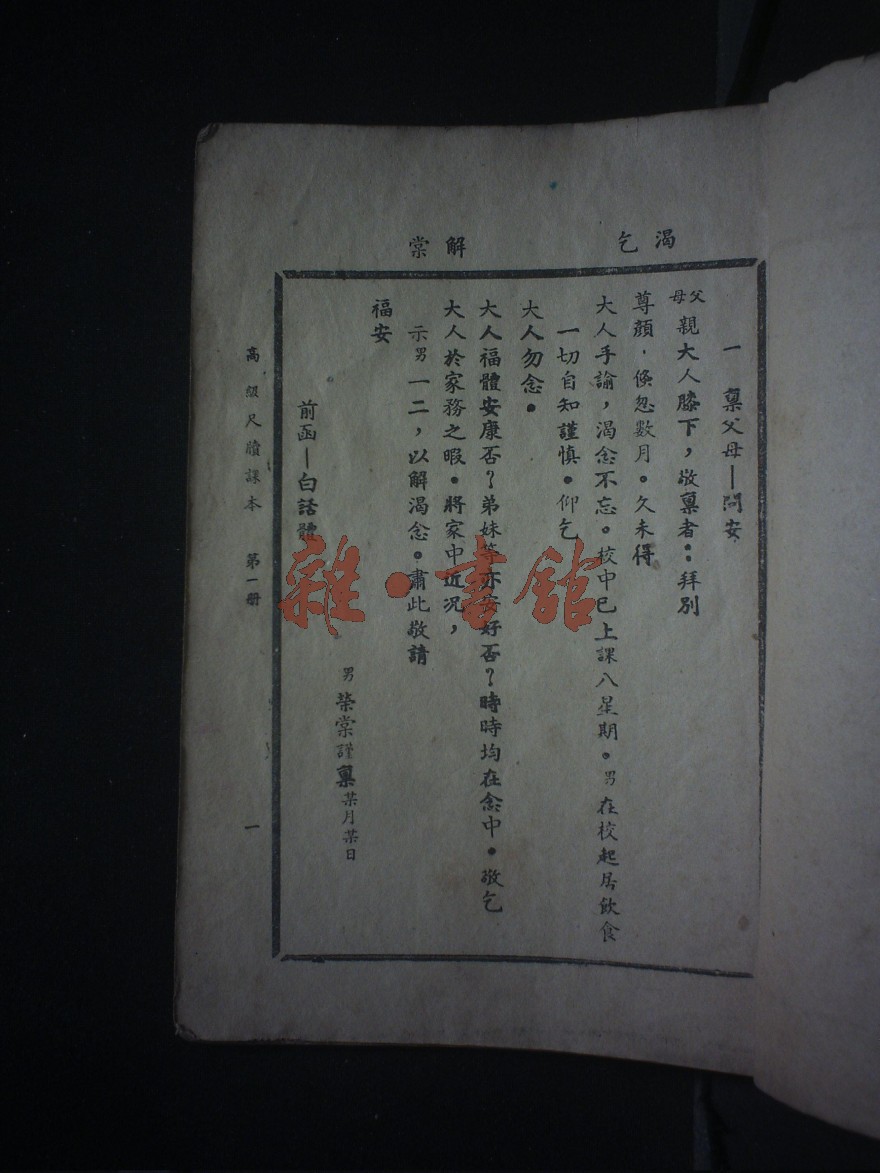 渴 乞 解 棠
一 稟父母—問安
父母親大人膝下，敬稟者：拜別
尊顏，倏忽數月。久未得
大人手諭，渴念不忘。校中已上課八星期。男在校起居飲食
一切自知謹慎。仰乞
大人勿念。
大人福體安康否？弟妹等亦安好否？時時均在念中。敬乞
大人於家務之暇。將家中近況，
示男一二，以解渴念。肅此敬請
福安
男榮棠謹稟某月某日
前函—白話體
高級尺牘課本 第一册 一
雜·書館